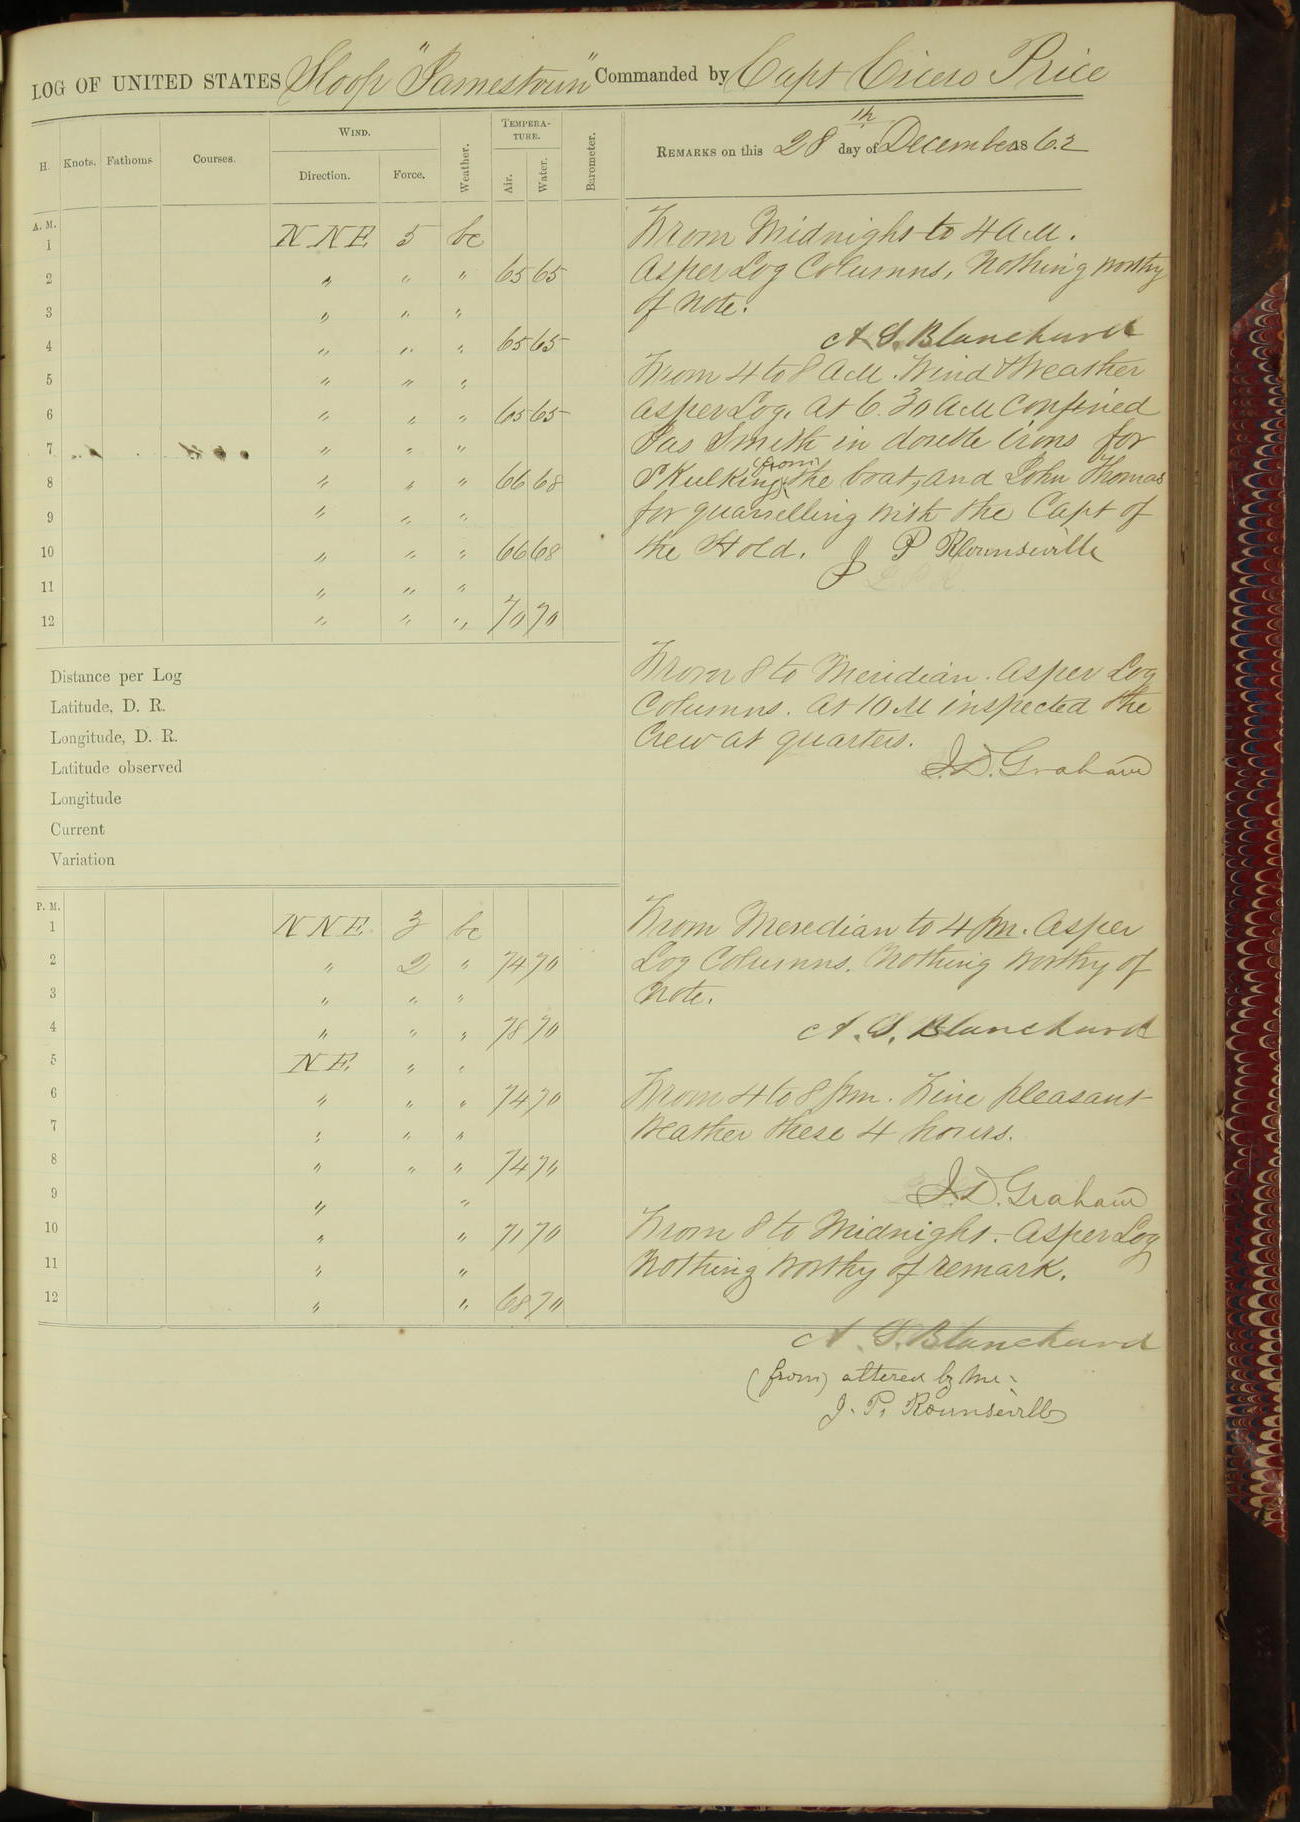 LOG OF UNITED STATES Sloop "Jamestown" Commanded by Capt Cicero Price
H. Knots. Fathoms Courses. WIND. Direction. Force. Weather. TEMPERATURE. Air. Water. Barometer.
REMARKS on this 28th day of December 1862
A. M.
1 NNE 5 bc
2 " " " 65 65
3 " " "
4 " " " 65 65
5 " " "
6 " " " 65 65
7 " " "
8 " " " 66 68
9 " " "
10 " " " 66 68
11 " " "
12 " " " 70 70
From Midnight to 4 A.M.
As per Log Columns, Nothing worthy
of Note.
A. S. Blanchard
From 4 to 8 A.M. Wind & Weather
as per Log. At 6.30 AM Confined
Jas Smith in double Irons for
Skulking from the boat, and John Thomas
for quarrelling with the Capt of
the Hold. J P Rounseville
From 8 to Meridian. As per Log
Columns. At 10 AM inspected the
Crew at quarters.
J. D. Graham
Distance per Log
Latitude, D. R.
Longitude, D. R.
Latitude observed
Longitude
Current
Variation
P. M.
1 NNE 3 bc
2 " 2 " 74 70
3 " " "
4 " " " 78 70
5 NE " "
6 " " " 74 70
7 " " "
8 " " " 74 70
9 " "
10 " " 71 70
11 " "
12 " " 68 70
From Meredian to 4 pm. As per
Log Columns. Nothing worthy of
Note.
A. S. Blanchard
From 4 to 8 pm. Fine pleasant
Weather these 4 hours.
J. D. Graham
From 8 to Midnight. - As per Log
Nothing worthy of remark.
A. S. Blanchard
(from) altered by me.
J. P. Rounseville